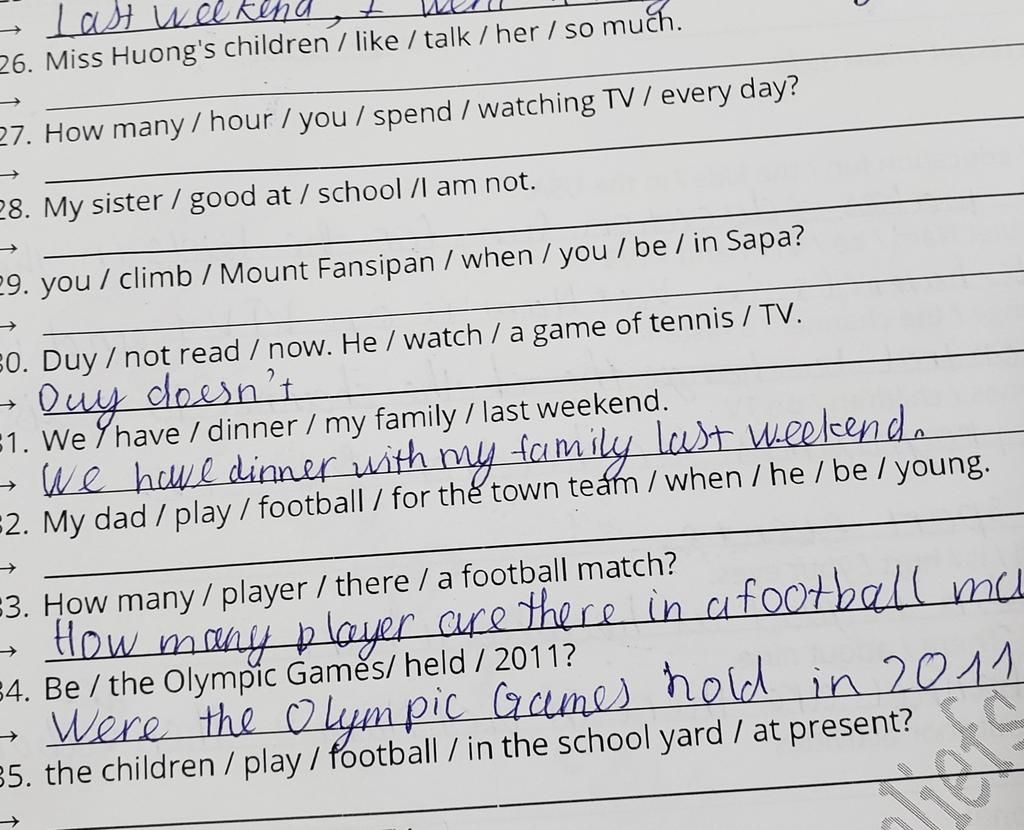 Last weekend, I went
26. Miss Huong's children / like / talk / her / so much.
→
27. How many / hour / you / spend / watching TV / every day?
→
28. My sister / good at / school /I am not.
→
29. you / climb / Mount Fansipan / when / you / be / in Sapa?
→
30. Duy / not read / now. He / watch / a game of tennis / TV.
→ Duy doesn't
31. We / have / dinner / my family / last weekend.
→ We have dinner with my family last weekend.
32. My dad / play / football / for the town team / when / he / be / young.
→
33. How many / player / there / a football match?
→ How many player are there in a football
34. Be / the Olympic Games/ held / 2011?
→ Were the Olympic Games hold in 2011
35. the children / play / football / in the school yard / at present?
→